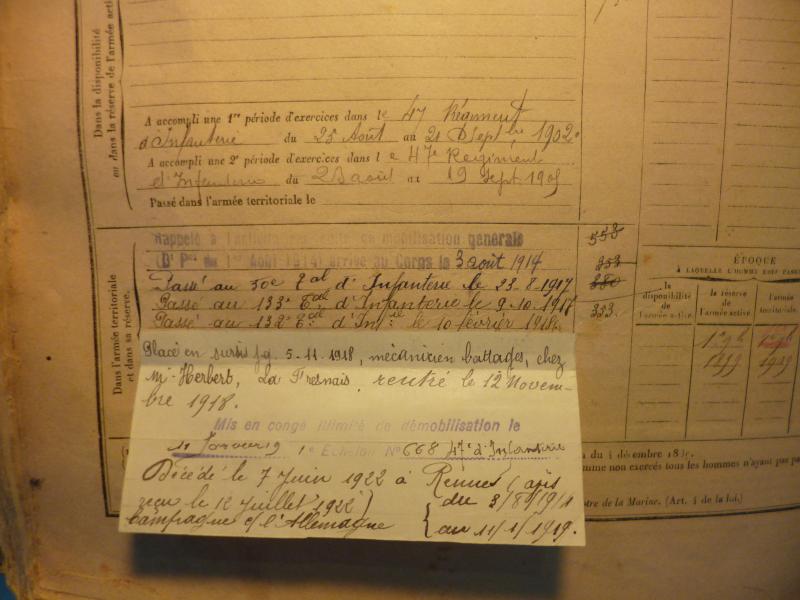 Dans la disponibilité
ou dans la réserve de l'armée active
A accompli une 1re période d'exercices dans le 47 Régiment
d'Infanterie du 25 Août au 21 Septbre 1902
A accompli une 2e période d'exercices dans le 47e Régiment
d'Infanterie du 23 août au 19 Sept. 1905
Passé dans l'armée territoriale le
Dans l'armée territoriale
et dans sa réserve.
Rappelé à l'activité mobilisation générale
(Dt Pal du 1er Août 1914) arrivé au Corps le 3 août 1914
Passé au 50e Tal d'Infanterie le 23.8.1917
Passé au 133e Tal d'Infanterie le 9.10.1917
Passé au 132e d'Infie le 10 février 1918
Placé en sursis 5-11-1918, mécanicien battages, chez
Mr Herbert, La Fresnais, rentré le 12 Novem-
bre 1918.
Mis en congé illimité de démobilisation le
1e Echelon No 668 47e d'Infanterie
Décédé le 7 Juin 1922 à Rennes (avis
reçu le 12 Juillet 1922)
Campagne c/ l'Allemagne
du 3/8/1914
au 11/1/1919.
553
253
333.
ÉPOQUE
À LAQUELLE L'HOMME DOIT PASSER
la
disponibilité
de
l'armée active.
la réserve
de
l'armée active.
l'armée
territoriale.
1899
du 4 décembre 18
mine non exercés tous les hommes n'ayant pas
stre de la Marine. (Art. 4 de la loi.)